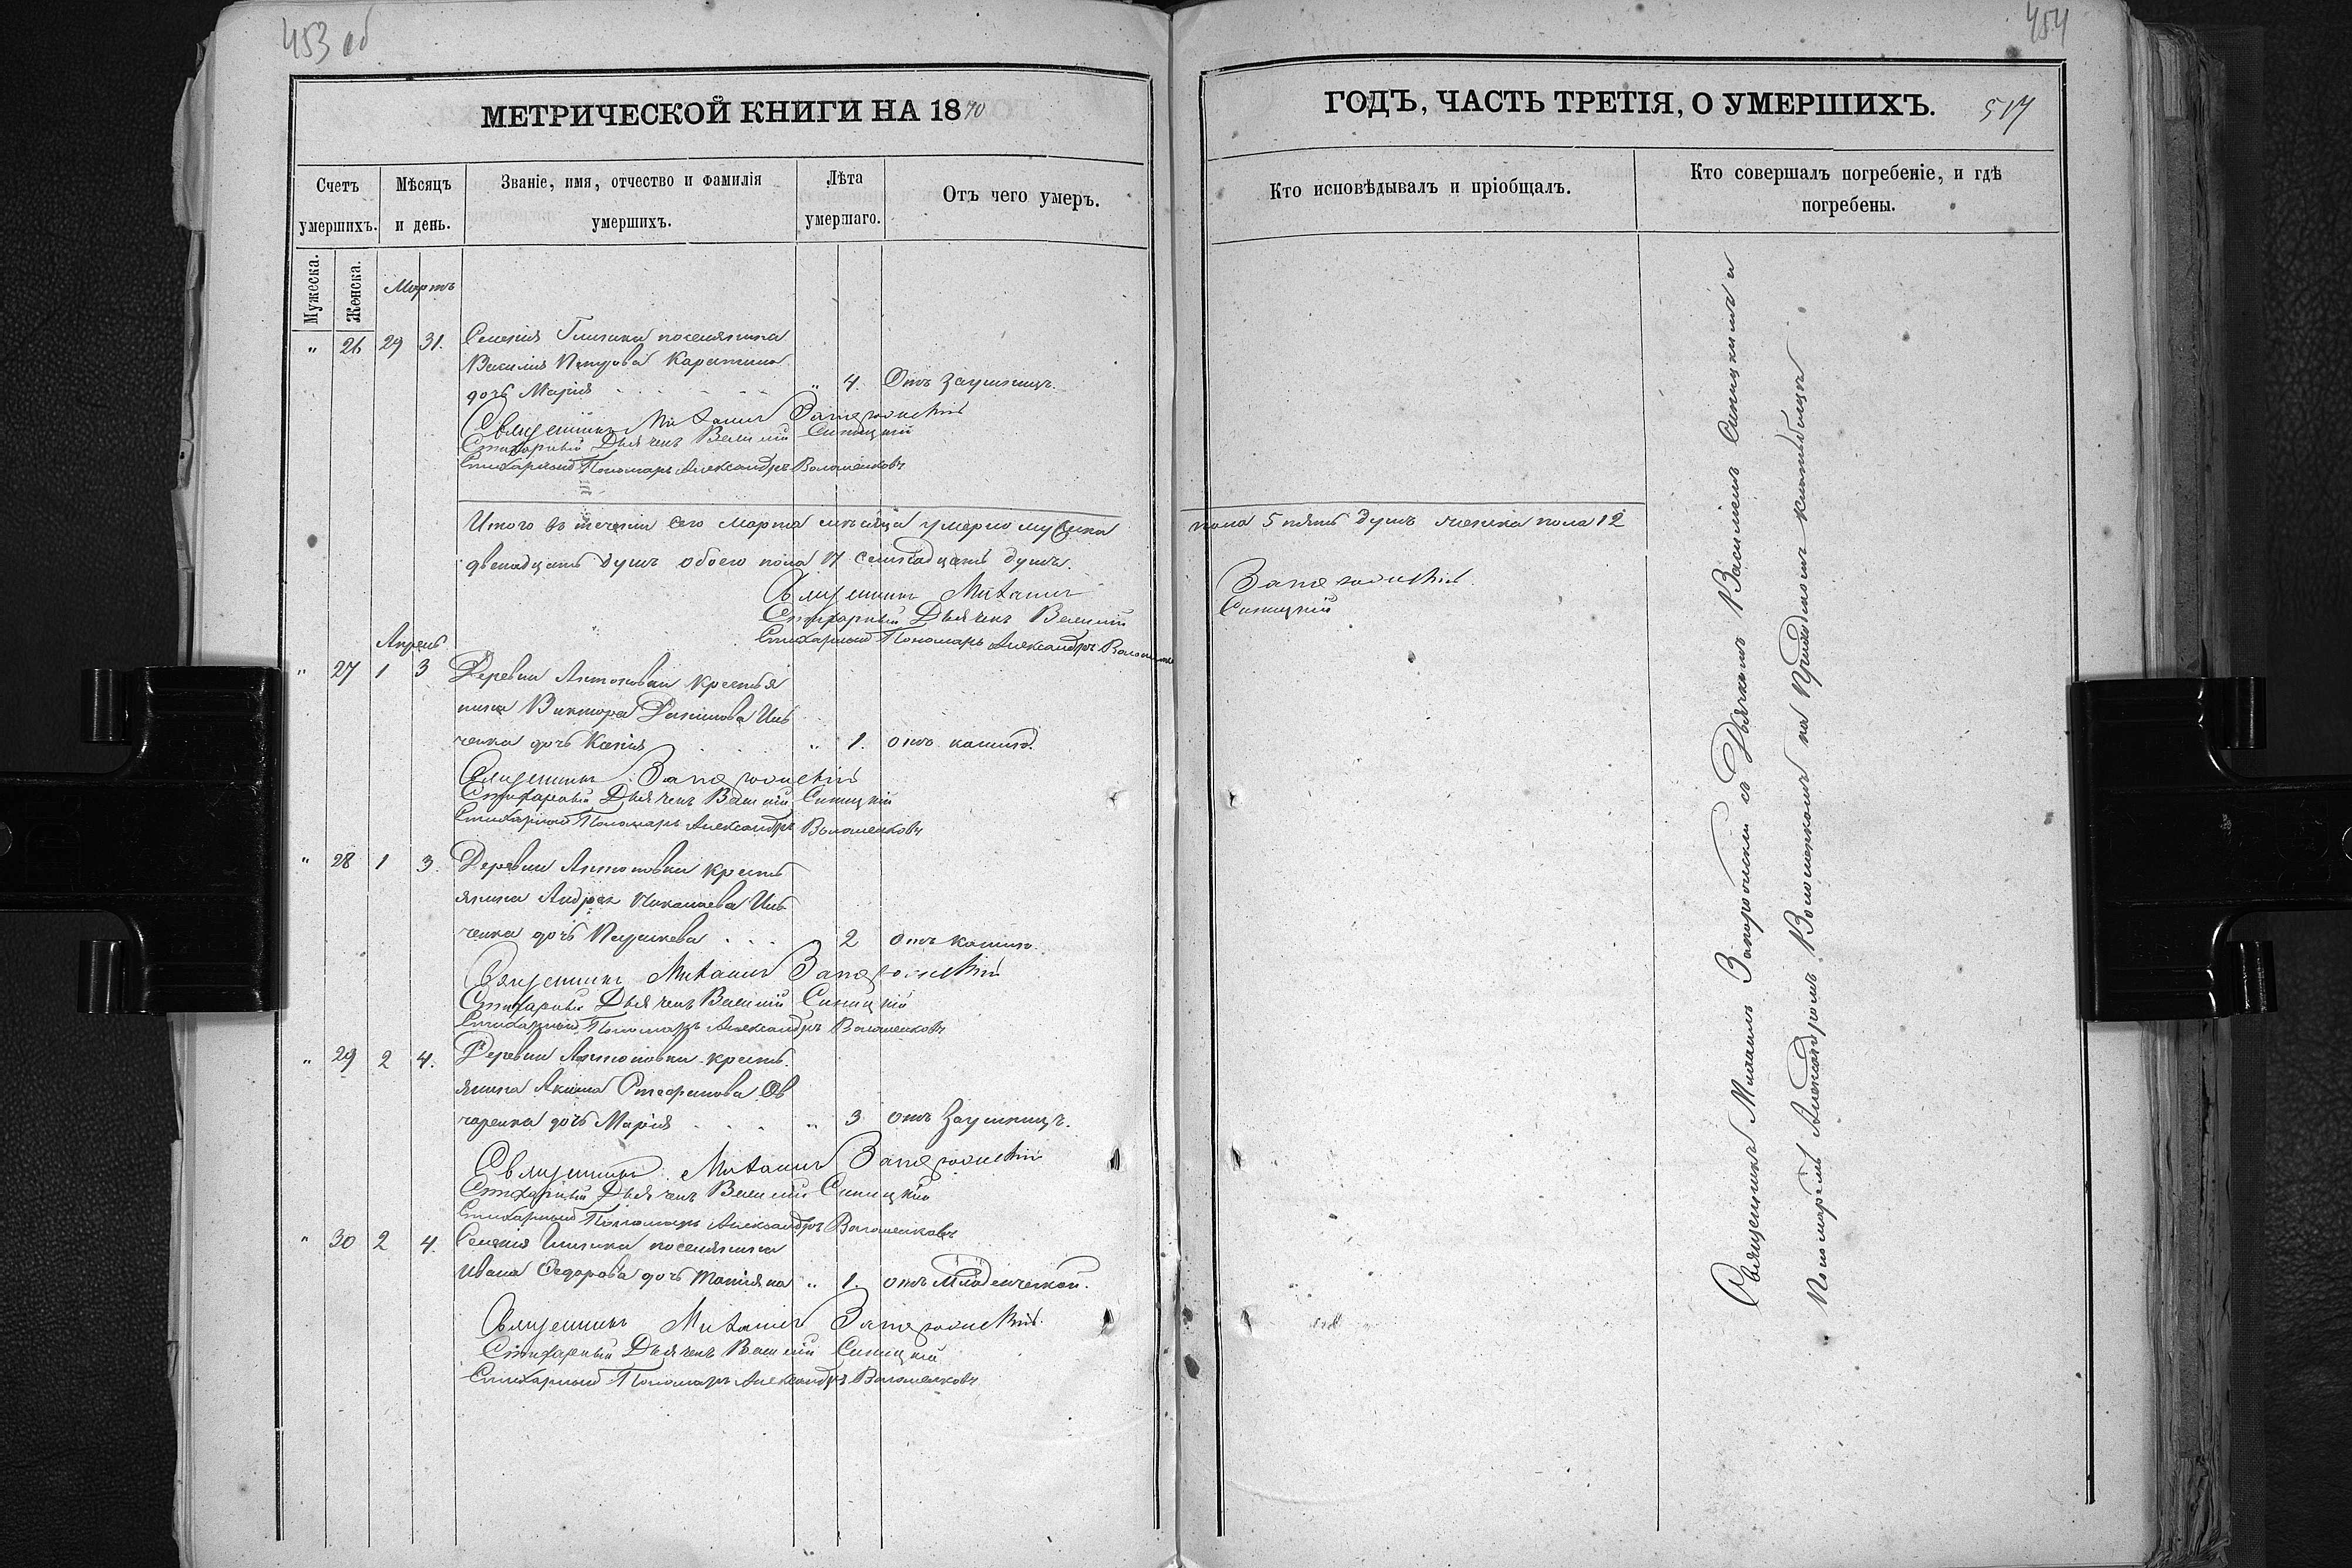 453 об
МЕТРИЧЕСКОЙ КНИГИ НА 1870
Счетъ умершихъ.
Мѣсяцъ и день.
Званіе, имя, отчество и фамилія умершихъ.
Лѣта умершаго.
Отъ чего умеръ.
Мужеска.
Женска.
Мартъ
" 26 29 31. Селенія Глиники поселянина
Василія Петрова
дочь Марія " 4. Отъ заушницъ.
Священникъ Михаилъ Запорожскій
Стихарный Дьячекъ Василій Синицкій
Стихарный Пономарь Александръ Волошенковъ
Итого въ теченіи сего Марта мѣсяца умерло мужска
двенадцать душъ обоего пола 17 семнадцать душъ.
Священникъ Михаилъ
Стихарный Дьячекъ Василій
Стихарный Пономарь Александръ
Апрель
" 27 1 3 Деревни Антоновки крестья
нина Виктора Иль
ченка дочь Ксенія " 1. отъ кашлю.
Священникъ Запорожскій
Стихарный Дьячекъ Василій Синицкій
Стихарный Пономарь Александръ Волошенковъ
" 28 1 3. Деревни Антоновки кресть
янина Андрея Николаева Иль
ченка дочь 2 отъ кашлю.
Священникъ Михаилъ Запорожскій
Стихарный Дьячекъ Василій Синицкій
Стихарный Пономарь Александръ Волошенковъ
" 29 2 4. Деревни Антоновки кресть
янина Акима Стефанова Ов
чаренка дочь Марія " 3 отъ заушницъ.
Священникъ Михаилъ Запорожскій
Стихарный Дьячекъ Василій Синицкій
Стихарный Пономарь Александръ Волошенковъ
" 30 2 4. Селенія Глиники поселянина
Ивана Федорова дочь Татіяна " 1. отъ Младенческой.
Священникъ Михаилъ Запорожскій.
Стихарный Дьячекъ Василій Синицкій
Стихарный Пономарь Александръ Волошенковъ
454
ГОДЪ, ЧАСТЬ ТРЕТІЯ, О УМЕРШИХЪ.
517
Кто исповѣдывалъ и пріобщалъ.
Кто совершалъ погребеніе, и гдѣ
погребены.
пола 5 пять душъ женска пола 12
Запорожскій.
Синицкій
Священникъ Михаилъ Запорожскій съ Дьячкомъ Василіемъ Синицкимъ и
Пономаремъ Александромъ Волошенковымъ на Приходскомъ кладбищѣ